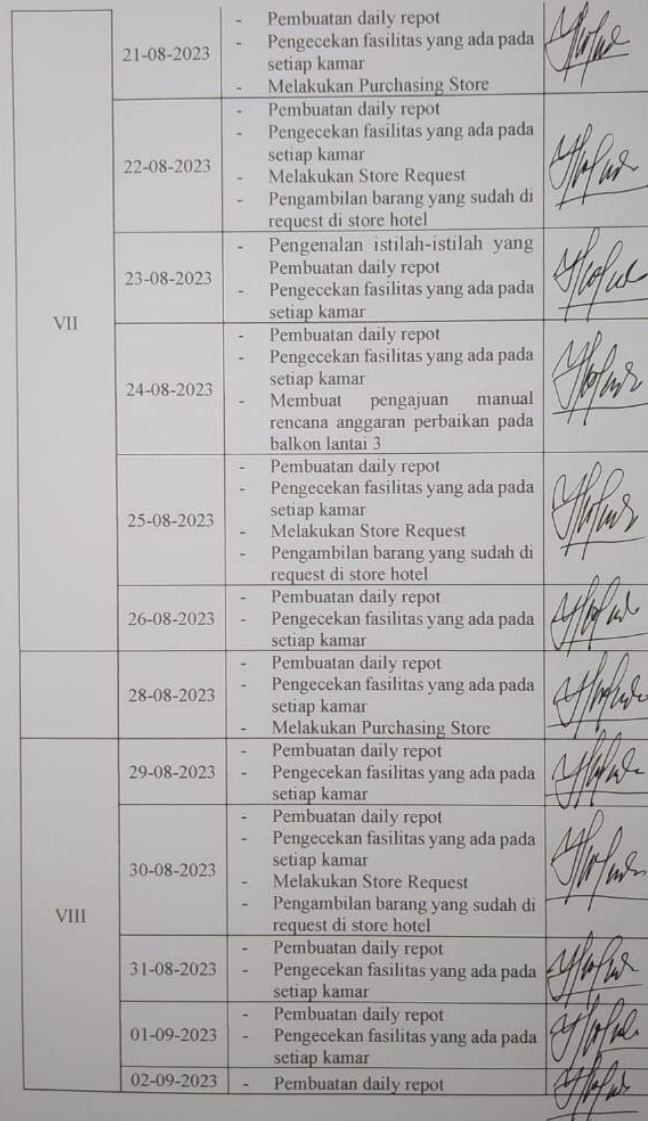 21-08-2023
- Pembuatan daily repot
- Pengecekan fasilitas yang ada pada
setiap kamar
- Melakukan Purchasing Store
VII
22-08-2023
- Pembuatan daily repot
- Pengecekan fasilitas yang ada pada
setiap kamar
- Melakukan Store Request
- Pengambilan barang yang sudah di
request di store hotel
23-08-2023
- Pengenalan istilah-istilah yang
Pembuatan daily repot
- Pengecekan fasilitas yang ada pada
setiap kamar
24-08-2023
- Pembuatan daily repot
- Pengecekan fasilitas yang ada pada
setiap kamar
- Membuat pengajuan manual
rencana anggaran perbaikan pada
balkon lantai 3
25-08-2023
- Pembuatan daily repot
- Pengecekan fasilitas yang ada pada
setiap kamar
- Melakukan Store Request
- Pengambilan barang yang sudah di
request di store hotel
26-08-2023
- Pembuatan daily repot
- Pengecekan fasilitas yang ada pada
setiap kamar
28-08-2023
- Pembuatan daily repot
- Pengecekan fasilitas yang ada pada
setiap kamar
- Melakukan Purchasing Store
VIII
29-08-2023
- Pembuatan daily repot
- Pengecekan fasilitas yang ada pada
setiap kamar
30-08-2023
- Pembuatan daily repot
- Pengecekan fasilitas yang ada pada
setiap kamar
- Melakukan Store Request
- Pengambilan barang yang sudah di
request di store hotel
31-08-2023
- Pembuatan daily repot
- Pengecekan fasilitas yang ada pada
setiap kamar
01-09-2023
- Pembuatan daily repot
- Pengecekan fasilitas yang ada pada
setiap kamar
02-09-2023
- Pembuatan daily repot